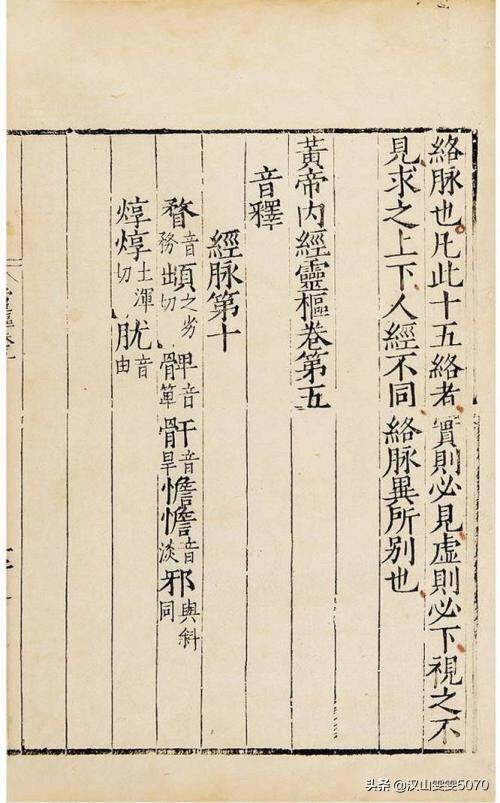 絡脉也凡此十五絡者實則必見虛則必下視之不
見求之上下人經不同絡脉異所别也
黃帝内經靈樞卷第五
音釋
經脉第十
瞀音務䪼之劣切髀音箄骭音旱憺憺音淡邪與斜同
焞焞土渾切肬音由
头条 @汉山雯雯5070